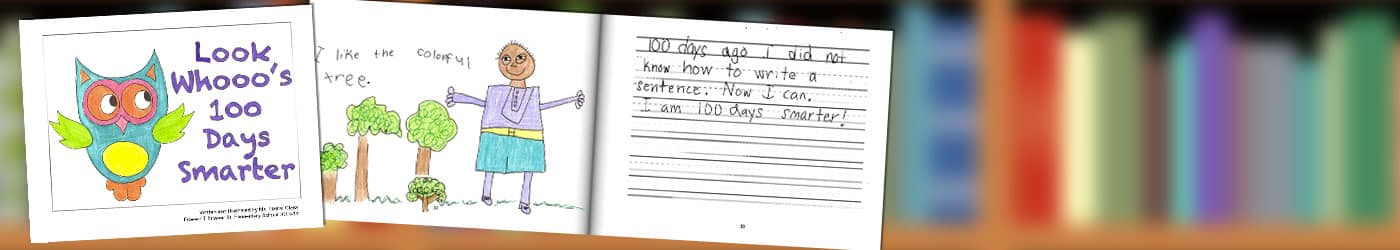 Look,
Whooo's
100
Days
Smarter
Written and Illustrated by Mr.
Elementary School
I like the colorful
tree.
100 days ago I did not
know how to write a
sentence. Now I can.
I am 100 days smarter!